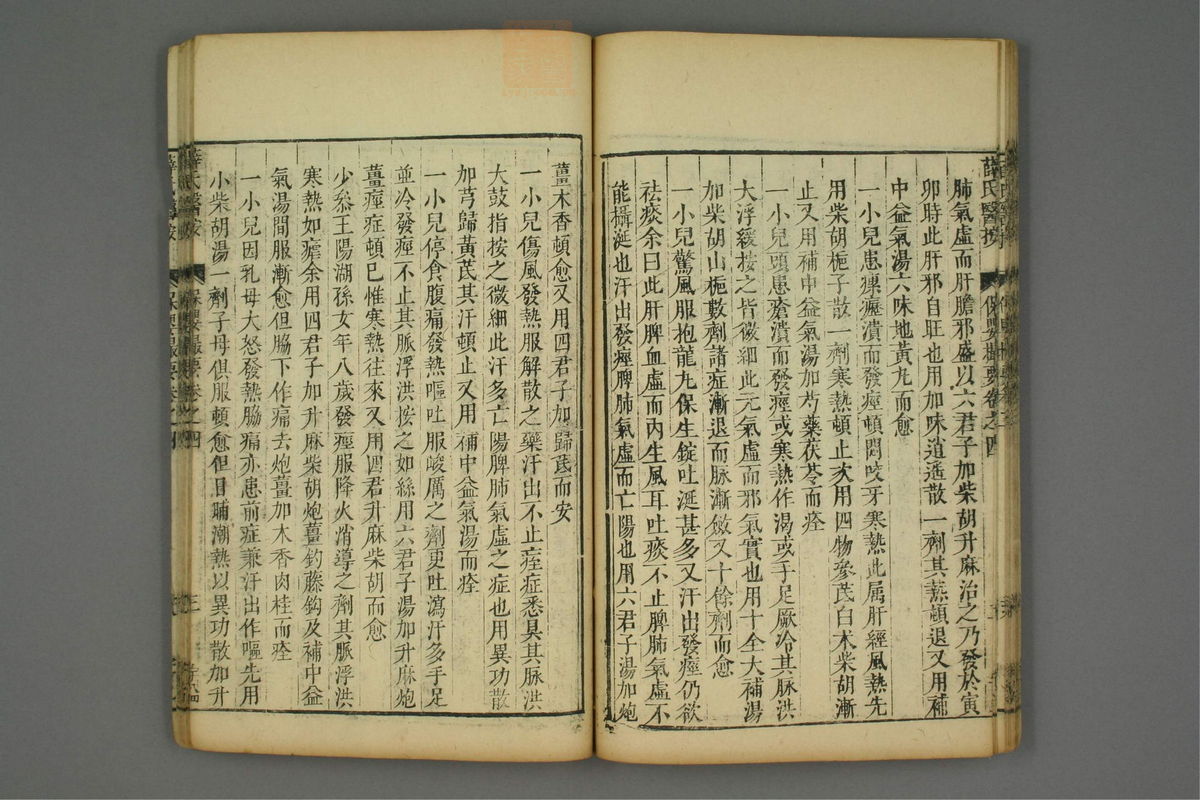 薛氏醫按 保嬰撮要卷之四
肺氣虛而肝膽邪盛以六君子加柴胡升麻治之乃發於寅
卯時此肝邪自旺也用加味逍遥散一劑其熱頓退又用補
中益氣湯六味地黃丸而愈
一小兒患瘰癧潰而發痙頓悶咬牙寒熱此属肝經風熱先
用柴胡梔子散一劑寒熱頓止次用四物參芪白朮柴胡漸
止又用補中益氣湯加芍藥茯苓而痊
一小兒頭患瘡潰而發痙或寒熱作渴或手足厥冷其脉洪
大浮緩按之皆微細此元氣虛而邪氣實也用十全大補湯
加柴胡山梔數劑諸症漸退而脉漸斂又十餘劑而愈
一小兒驚風服抱龍丸保生錠吐涎甚多又汗出發痙仍欲
祛痰余曰此肝脾血虛而內生風耳吐痰不止脾肺氣虛不
能攝涎也汗出發痙脾肺氣虛而亡陽也用六君子湯加炮
薑木香頓愈又用四君子加歸芪而安
一小兒傷風發熱服解散之藥汗出不止痙症悉具其脉洪
大鼓指按之微細此汗多亡陽脾肺氣虛之症也用異功散
加芎歸黃芪其汗頓止又用補中益氣湯而痊
一小兒停食腹痛發熱嘔吐服峻厲之劑更吐瀉汗多手足
並冷發痙不止其脈浮洪按之如絲用六君子湯加升麻炮
薑痙症頓已惟寒熱往來又用四君升麻柴胡而愈
少參王陽湖孫女年八歲發痙服降火消導之劑其脈浮洪
寒熱如瘧余用四君子加升麻柴胡炮薑釣藤鈎及補中益
氣湯間服漸愈但脇下作痛去炮薑加木香肉桂而痊
一小兒因乳母大怒發熱脇痛亦患前症兼汗出作嘔先用
小柴胡湯一劑子母俱服頓愈但日晡潮熱以異功散加升
薛氏醫按 保嬰撮要卷之四